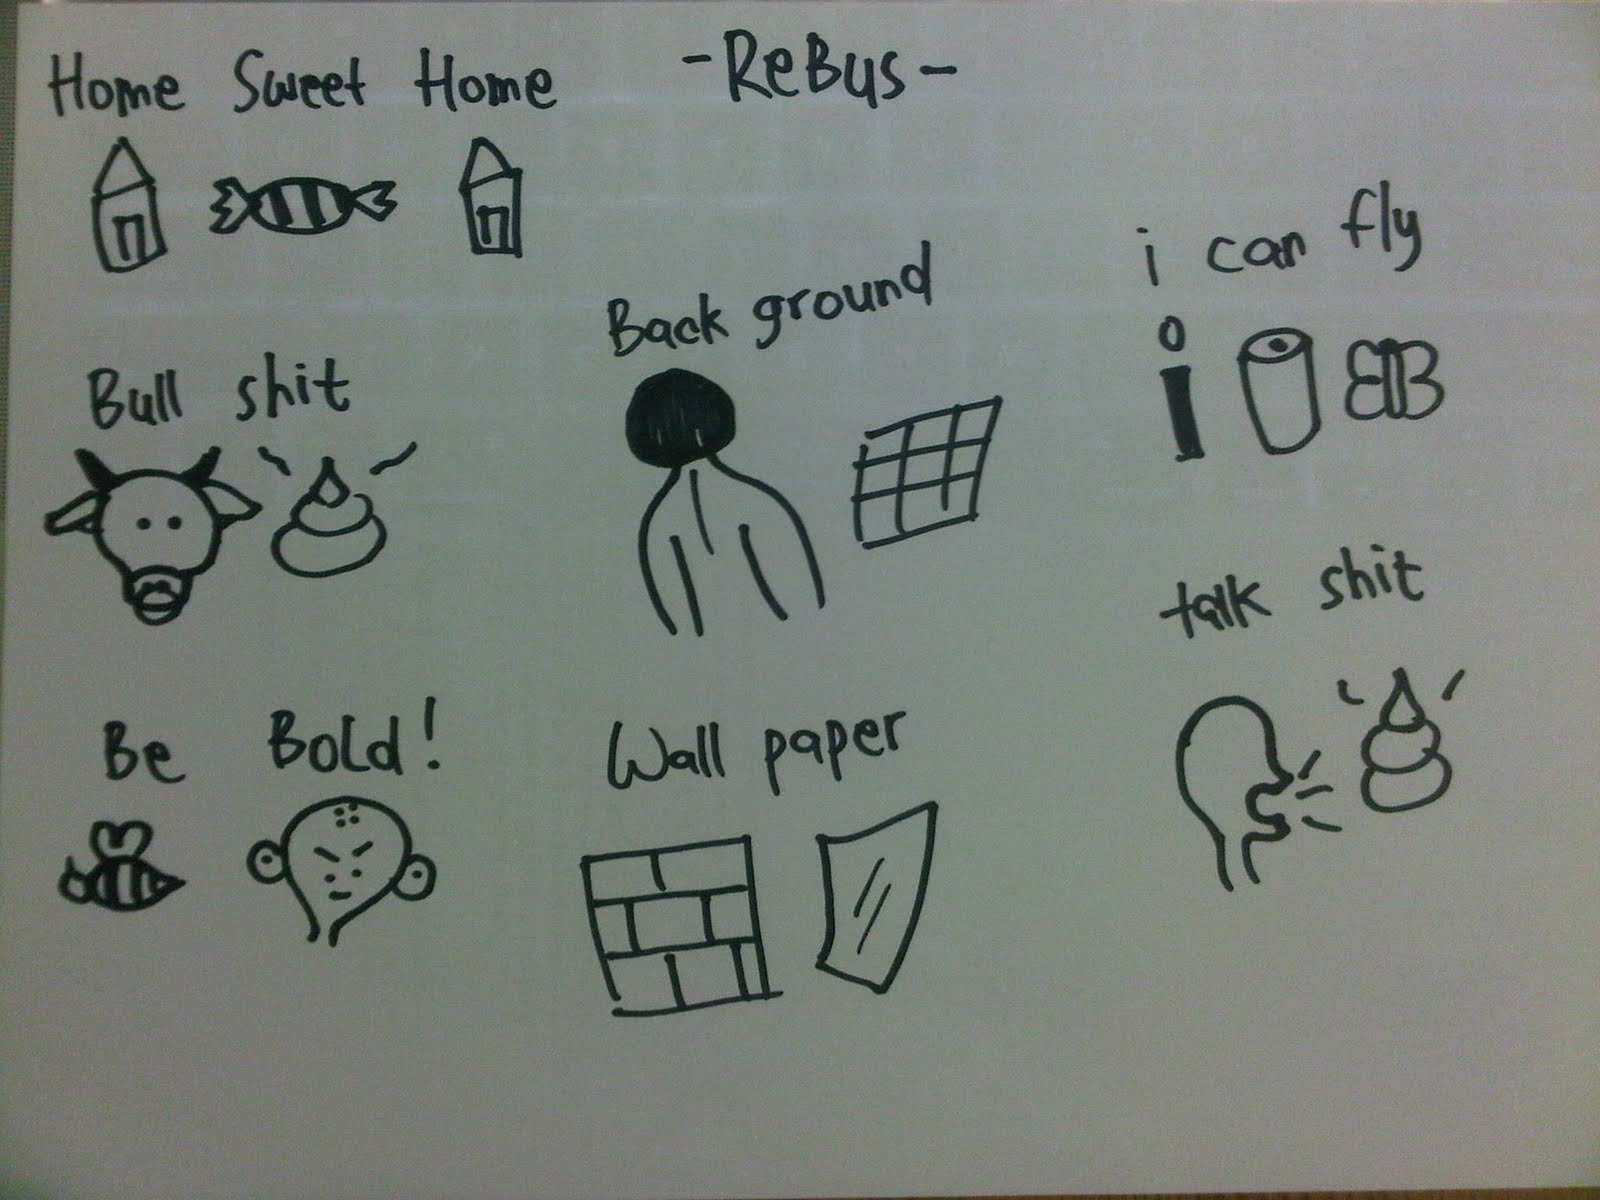 Home Sweet Home
-ReBus-
i can fly
Back ground
Bull shit
talk shit
Be Bold!
Wall paper
i